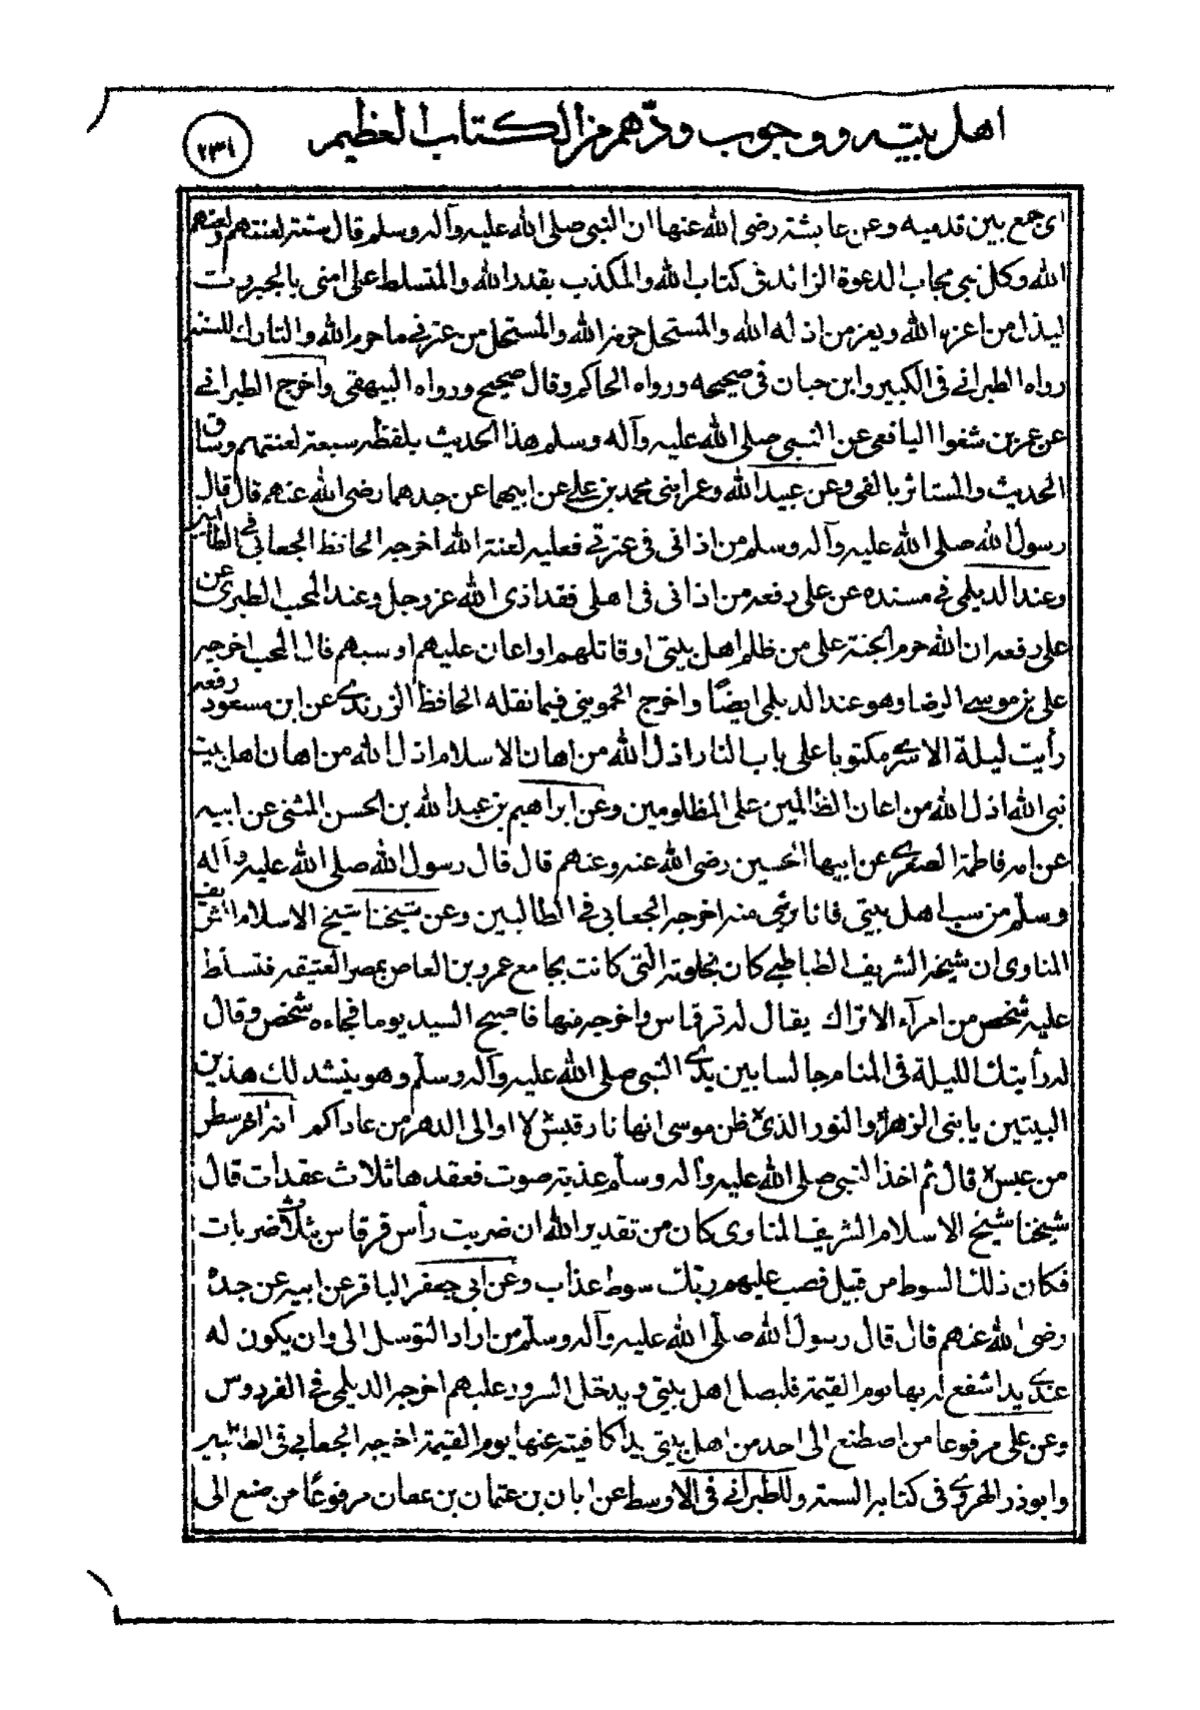 اهل بيته ووجوب ودّهم من الكتاب العظيم
٢٣١
اى جمع بين قدميه وعن عايشة رضى الله عنها ان النبى صلى الله عليه وآله وسلم قال ستة لعنتهم ولعنهم
الله وكل نبى مجاب الدعوة الزائد فى كتاب الله والمكذب بقدر الله والمتسلط على امتى بالجبروت
ليذل من اعزه الله ويعز من اذله الله والمستحل حرم الله والمستحل من عترتى ما حرم الله والتارك للسنة
رواه الطبرانى فى الكبير وابن حبان فى صحيحه ورواه الحاكم وقال صحيح ورواه البيهقى واخرج الطبرانى
عن عمرو بن شغوا اليافعى عن النبى صلى الله عليه وآله وسلم هذا الحديث بلفظ سبعة لعنتهم وساق
الحديث والمستاثر بالفى وعن عبيد الله وعمر ابنى محمد بن على عن ابيهما عن جدهما رضى الله عنهم قال قال
رسول الله صلى الله عليه وآله وسلم من اذانى فى عترتى فعليه لعنة الله اخرجه الحافظ الجعابى فى الطالبين
وعند الديلمى فى مسنده عن على رفعه من اذانى فى اهلى فقد اذى الله عز وجل وعند المحب الطبرى عن
على رفعه ان الله حرم الجنة على من ظلم اهل بيتى او قاتلهم او اعان عليهم او سبهم قال المحب اخرجه
على بن موسى الرضا وهو عند الديلمى ايضًا واخرج الحموينى فيما نقله الحافظ الزرندى عن ابن مسعود رفعه
رأيت ليلة الاسرى مكتوبا على باب النار اذل الله من اهان الاسلام اذل الله من اهان اهل بيت
نبى الله اذل الله من اعان الظالمين على المظلومين وعن ابراهيم بن عبد الله بن الحسن المثنى عن ابيه
عن امه فاطمة الصغرى عن ابيها الحسين رضى الله عنه وعنهم قال قال رسول الله صلى الله عليه وآله
وسلّم من سب اهل بيتى فانا برئ منه اخرجه الجعابى فى الطالبين وعن شيخنا شيخ الاسلام الشريف
المناوى ان شيخه الشريف الطباطبى كان بخلوته التى كانت بجامع عمرو بن العاص بمصر العتيقه فتسلط
عليه شخص من امرآء الاتراك يقال له قرقماس واخرجه منها فاصبح السيد يوما فجاءه شخص وقال
له رأيتك الليلة فى المنام جالسا بين يدى النبى صلى الله عليه وآله وسلم وهو ينشد لك هذين
البيتين يا بنى الزهراء والنور الذى ظن موسى انها نار قبس لا اوالى الدهر من عاداكم انه اخر سطر
من عبس قال ثم اخذ النبى صلى الله عليه وآله وسلم عذبة صوت فعقدها ثلاث عقدات قال
شيخنا شيخ الاسلام الشريف المناوى كان من تقدير الله ان ضربت رأس قرقماس بثلاث ضربات
فكان ذلك السوط من قبيل فصب عليهم ربك سوط عذاب وعن ابى جعفر الباقر عن ابيه عن جده
رضى الله عنهم قال قال رسول الله صلّى الله عليه وآله وسلّم من اراد التوسل الى وان يكون له
عندى يد اشفع له بها يوم القيمة فليصل اهل بيتى ويدخل السرور عليهم اخرجه الديلمى فى الفردوس
وعن على مرفوعا من اصطنع الى احد من اهل بيتى يدا كافيته عنها يوم القيمة اخرجه الجعابى فى الطالبين
وابو ذر الهروى فى كتابه السنة وللطبرانى فى الاوسط عن ابان بن عثمان بن عفان مرفوعًا من صنع الى